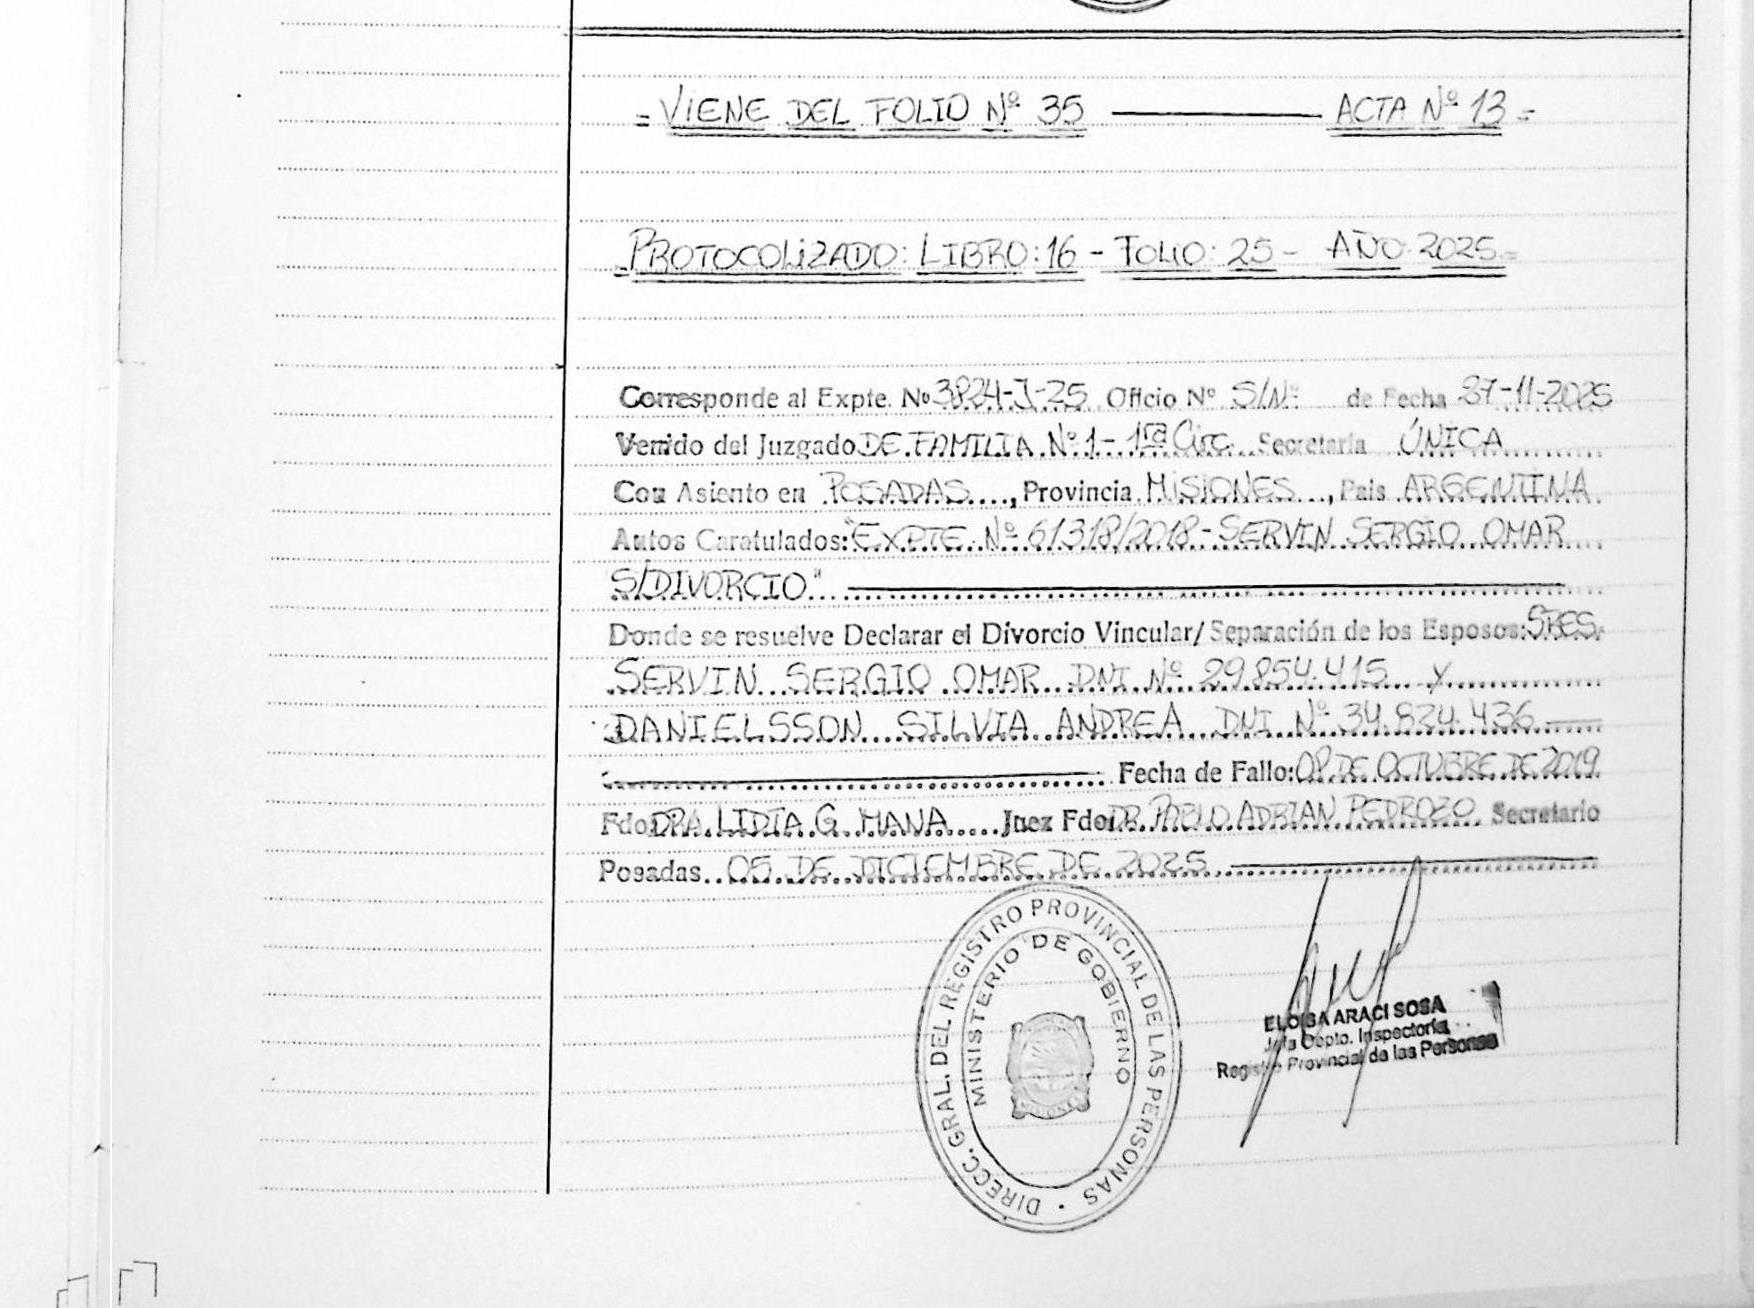 = VIENE DEL FOLIO Nº 35 ——— ACTA Nº 13 =
PROTOCOLIZADO: LIBRO: 16 - FOLIO: 25 - AÑO 2025 =
Corresponde al Expte. Nº 3824-J-25 Oficio Nº S/Nº de Fecha 27-11-2025
Venido del Juzgado DE FAMILIA Nº 1 - 1ra Circ. Secretaría ÚNICA
Con Asiento en POSADAS, Provincia MISIONES, Pais ARGENTINA
Autos Caratulados: "EXPTE. Nº 61318/2018 - SERVIN SERGIO OMAR
S/DIVORCIO"
Donde se resuelve Declarar el Divorcio Vincular/ Separación de los Esposos: SRES.
SERVIN SERGIO OMAR DNI Nº 29.854.415 y
DANIELSSON SILVIA ANDREA DNI Nº 34.824.436
Fecha de Fallo: DE OCTUBRE DE 2019
Fdo: DRA. LIDIA G. MANA Juez Fdo: DR. PABLO ADRIAN PEDROZO Secretario
Posadas 05 DE DICIEMBRE DE 2025
DIRECC. GRAL. DEL REGISTRO PROVINCIAL DE LAS PERSONAS
MINISTERIO DE GOBIERNO
ELOISA ARACI SOSA
Jefa Depto. Inspectoría
Registro Provincial de las Personas